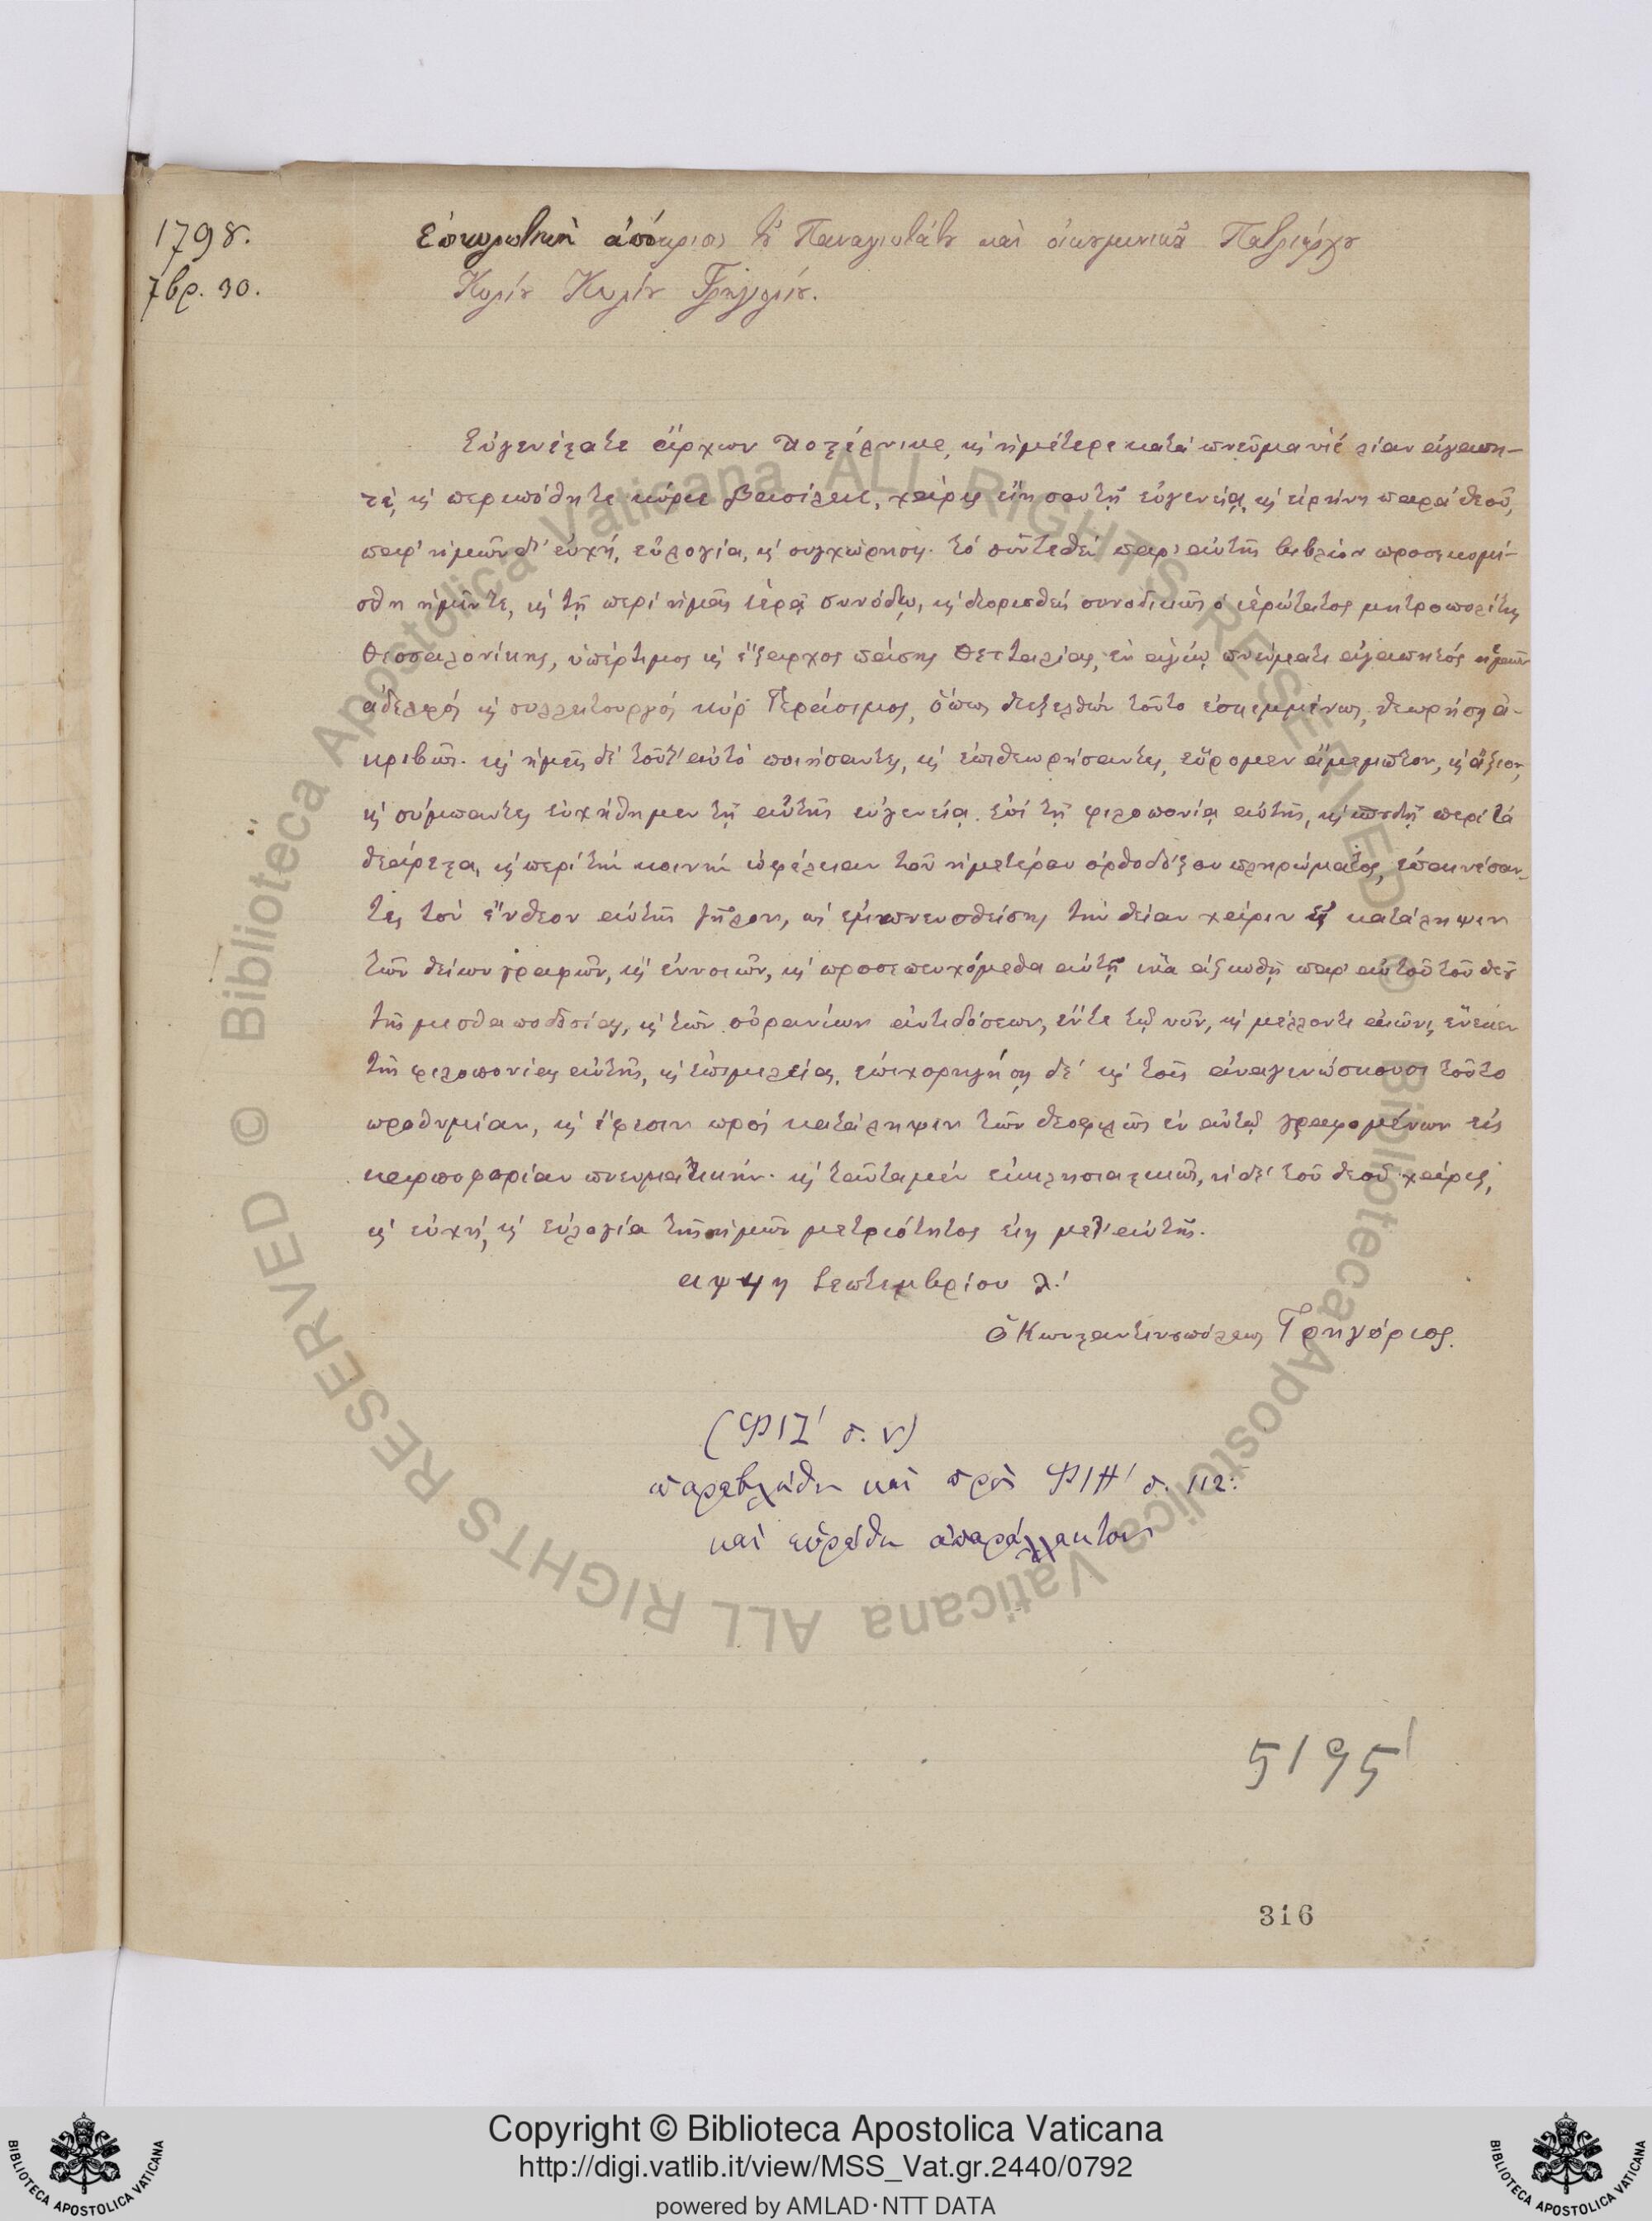 1798.
7βρ. 30.
Ἐπικυρωτικὴ ἀπόκρισις τοῦ Παναγιωτάτου καὶ οἰκουμενικοῦ Πατριάρχου
Κυρίου Κυρίου Γρηγορίου.
Εὐγενέστατε ἄρχων Ποστέλνικε, καὶ ἡμέτερε κατὰ πνεῦμα υἱὲ λίαν ἀγαπη-
τὲ, καὶ περιπόθητε κύριε Βασίλειε, χάρις εἴη σου τῇ εὐγενείᾳ, καὶ εἰρήνη παρὰ θεοῦ,
παρ' ἡμῶν δ' εὐχή, εὐλογία, καὶ συγχώρησις. τὸ συντεθὲν παρ' αὐτῆς βιβλίον προσεκομί-
σθη ἡμῖν τε, καὶ τῇ περὶ ἡμᾶς ἱερᾷ συνόδῳ, καὶ διορισθεὶς συνοδικῶς ὁ ἱερώτατος μητροπολίτης
Θεσσαλονίκης, ὑπέρτιμος καὶ ἔξαρχος πάσης Θετταλίας, ἐν ἁγίῳ πνεύματι ἀγαπητὸς ἡμῶν
ἀδελφὸς καὶ συλλειτουργὸς κὺρ Γεράσιμος, ὅπως διεξελθὼν τοῦτο ἐσκεμμένως, θεωρήσῃ ἀ-
κριβῶς. καὶ ἡμεῖς δὲ τοῦτ' αὐτὸ ποιήσαντες, καὶ ἐπιθεωρήσαντες, εὕρομεν ἄμεμπτον, καὶ ἄξιον,
καὶ σύμπαντες εὐχήθημεν τῇ αὐτῆς εὐγενείᾳ ἐπὶ τῇ φιλοπονίᾳ αὐτῆς, καὶ σπουδῇ περὶ τὰ
θεάρεστα, καὶ περὶ τὴν κοινὴν ὠφέλειαν τοῦ ἡμετέρου ὀρθοδόξου πληρώματος, ἐπαινέσαν-
τες τὸν ἔνθεον αὐτῆς ζῆλον, ὡς ἐμπνευσθείσης τὴν θείαν χάριν εἰς κατάληψιν
τῶν θείων γραφῶν, καὶ ἐννοιῶν, καὶ προσεπευχόμεθα αὐτῇ ἵνα ἀξιωθῇ παρ' αὐτοῦ τοῦ θεοῦ
τῆς μισθαποδοσίας, καὶ τῶν οὐρανίων ἀντιδόσεων, ἔν τε τῷ νῦν, καὶ μέλλοντι αἰῶνι, ἕνεκεν
τῆς φιλοπονίας αὐτῆς, καὶ ἐπιμελείας, ἐπιχορηγήσῃ δὲ καὶ τοῖς ἀναγινώσκουσι τοῦτο
προθυμίαν, καὶ ἔφεσιν πρὸς κατάληψιν τῶν θεοφιλῶς ἐν αὐτῷ γραφομένων εἰς
καρποφορίαν πνευματικήν. καὶ ταῦτα μὲν ἐκκλησιαστικῶς, ἡ δὲ τοῦ θεοῦ χάρις,
καὶ εὐχὴ, καὶ εὐλογία τῆς ἡμῶν μετριότητος εἴη μετ' αὐτῆς.
αψϟη Σεπτεμβρίου λ'
ὁ Κωνσταντινουπόλεως Γρηγόριος.
(ΦΙΖ' σ. ν)
παρεβλήθη καὶ πρὸς ΦΙΗ' σ. 112:
καὶ εὑρέθη ἀπαράλλακτον
5195
316
Copyright © Biblioteca Apostolica Vaticana
http://digi.vatlib.it/view/MSS_Vat.gr.2440/0792
powered by AMLAD·NTT DATA
BIBLIOTECA APOSTOLICA VATICANA
BIBLIOTECA APOSTOLICA VATICANA
© Biblioteca Apostolica Vaticana ALL RIGHTS RESERVED © Biblioteca Apostolica Vaticana ALL RIGHTS RESERVED